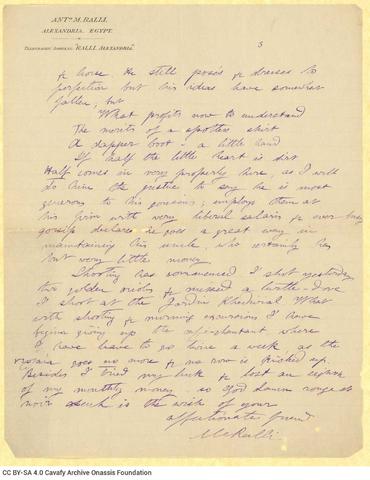 ANT. M. RALLI.
ALEXANDRIA, EGYPT.
TELEGRAPHIC ADDRESS, "RALLI, ALEXANDRIA."
3
& horse. He still poses & dresses to
perfection but his ideas have somewhat
fallen; but
What profits now to understand
The merits of a spotless shirt
A dapper boot - a little hand
If half the little heart is dirt
Half comes in very properly here, as I will
do him the justice to say he is most
generous to his cousins; employs them at
his firm with very liberal salaries & even
gossip declares he goes a great way in
maintaining his uncle, who certainly has
but very little money.
Shooting has commenced. I shot yesterday
two golden orioles & missed a turtle-dove
I shoot at the Jardin Khedivial. What
with shooting & morning excursions I have
begun giving up the where
I have leave to go twice a week as the
goes no more & no row is kicked up.
Besides I tried my luck & lost an
of my monthly money so
noir is the wish of your
affectionate friend
MRalli
CC BY-SA 4.0 Cavafy Archive Onassis Foundation